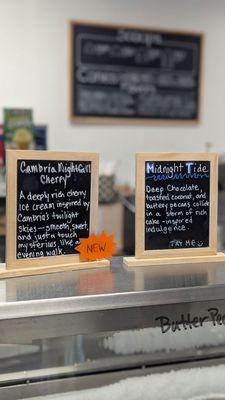 Scoops
Cambria Night Gill
Cherry
A deeply rich cherry
ice cream inspired by
Cambria's twilight
skies - smooth, sweet,
and just a touch
mysterious like a
evening walk.
NEW
Midnight Tide
Deep Chocolate,
toasted coconut, and
buttery pecans collide
in a storm of rich
cake - inspired
indulgence.
TRY ME
Butter Pe